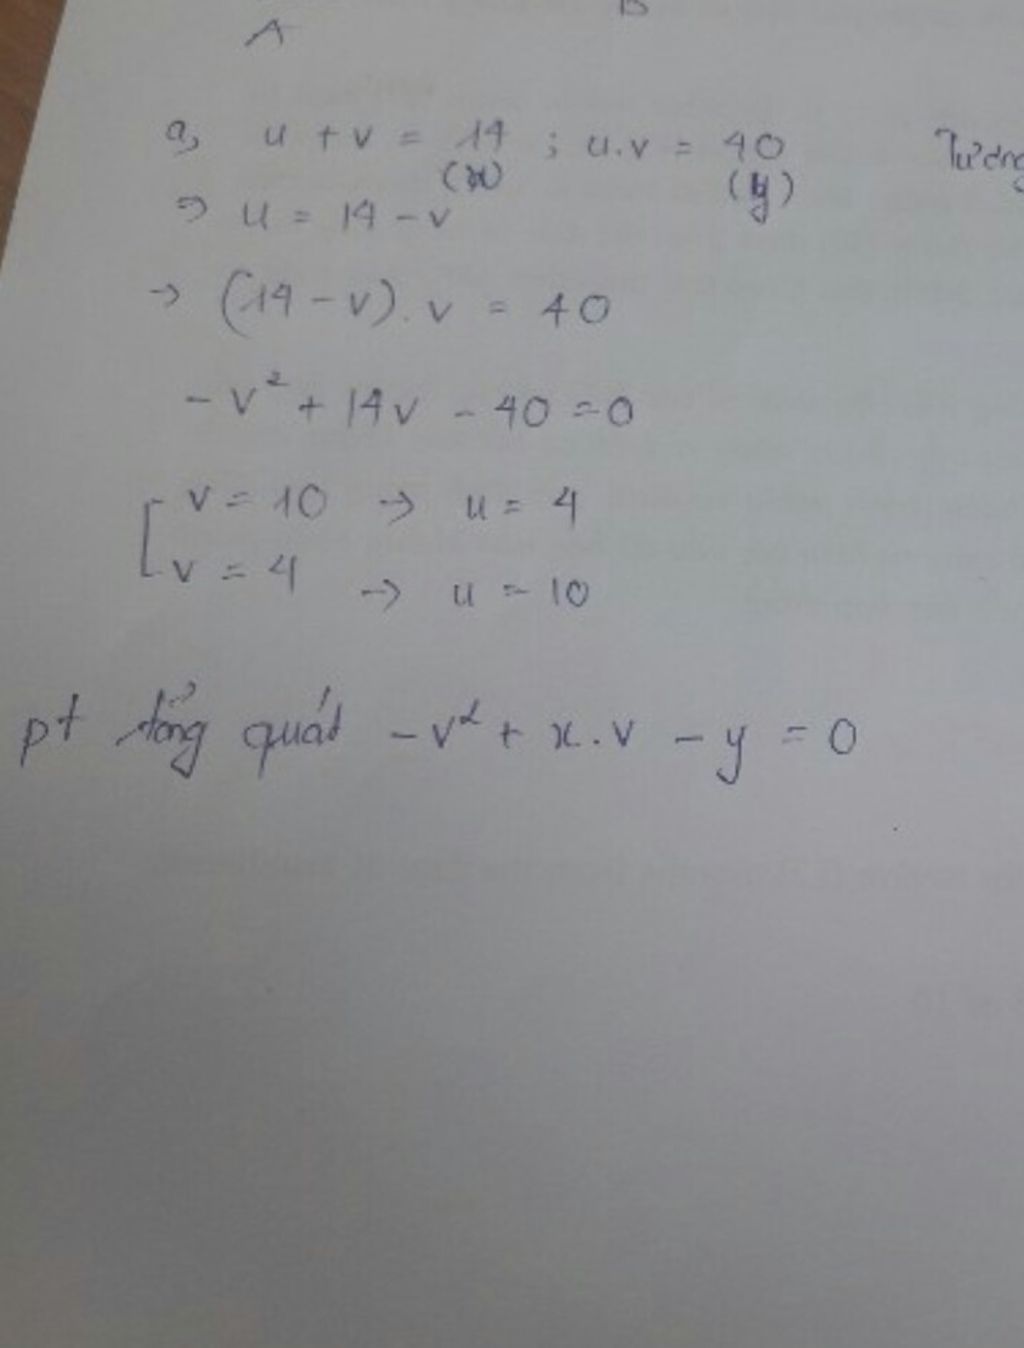 A
a, u + v = 14 ; u.v = 40
(x) (y)
=> u = 14 - v
-> (14 - v). v = 40
- v² + 14v - 40 = 0
[ v = 10 -> u = 4
v = 4 -> u = 10
pt tổng quát - v² + x. v - y = 0